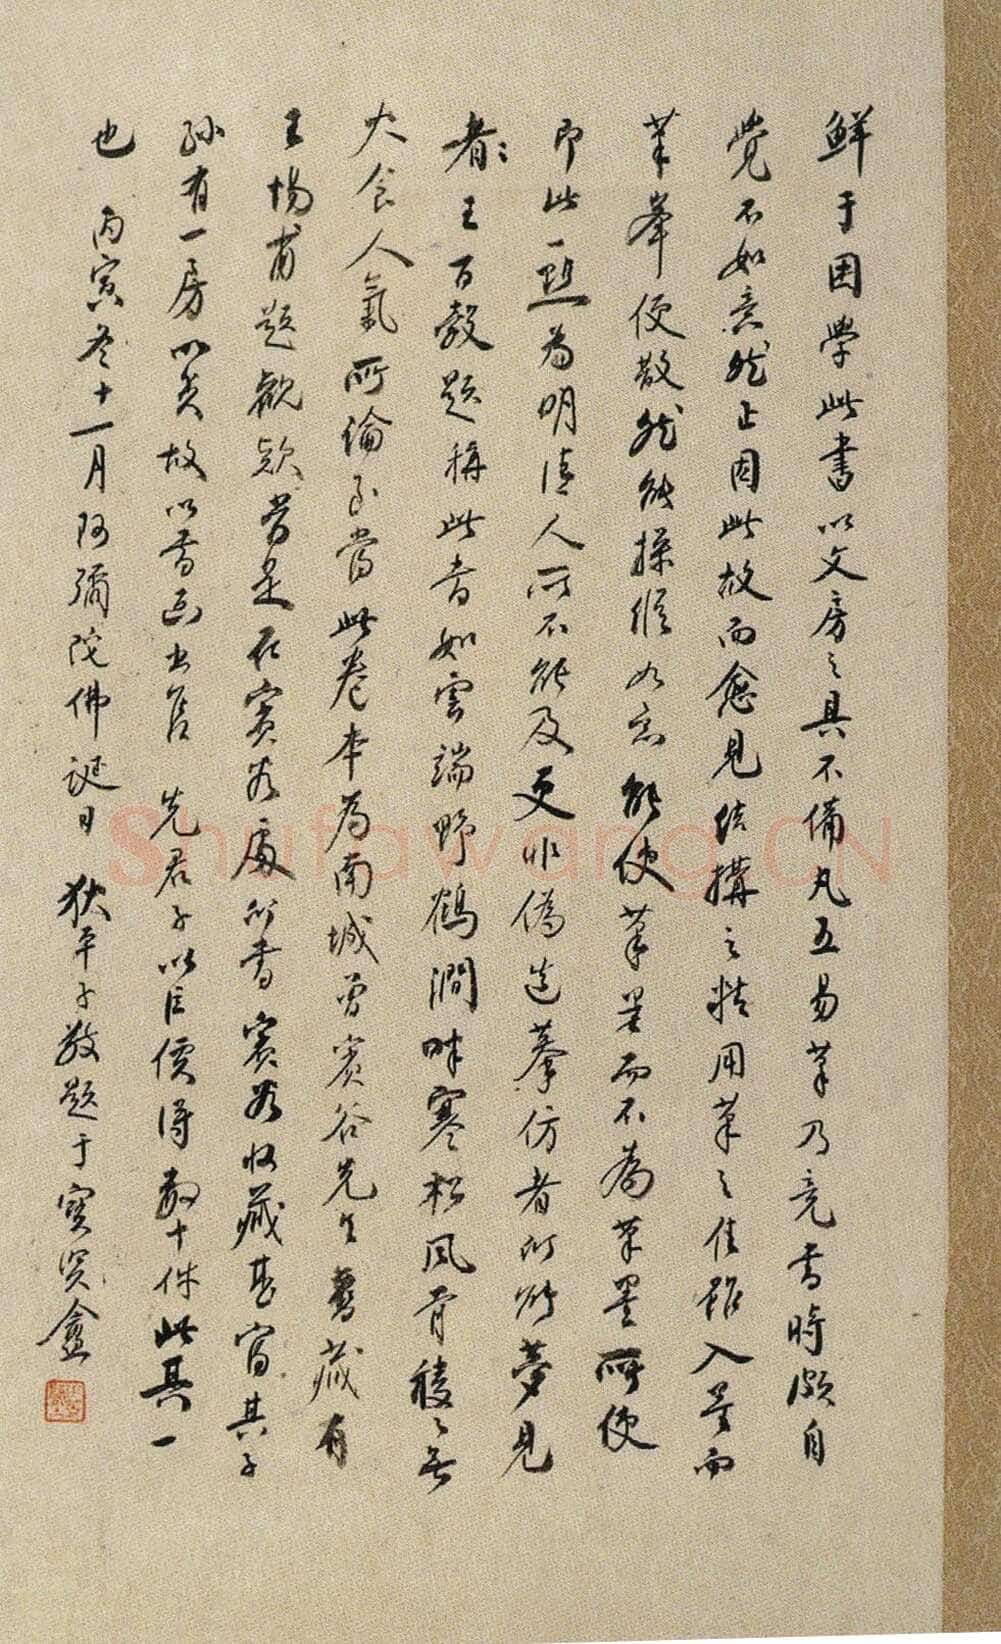 鮮于困學此書以文房之具不備凡五易筆乃竟書時頗自
覺不如意然止因此故而愈見結構之精用筆之佳雖入墨而
筆峯便散然能操縱如意能使筆墨而不為筆墨所使
即此一點為明清人所不能及更非偽造摹仿者所夢見
者王百穀題稱此書如雲端野鶴澗畔寒松風骨稜〻無
火食人氣所論至當此卷本為南城曾賓谷先生舊藏有
王惕甫題觀欵當是在賓谷處所書賓谷收藏甚富其子
孫有一房以貧故以書畫出售先君子以巨價得數十件此其一
也丙寅冬十一月阿彌陀佛誕日狄平子敬題于寶賢盦
Shufawang.CN